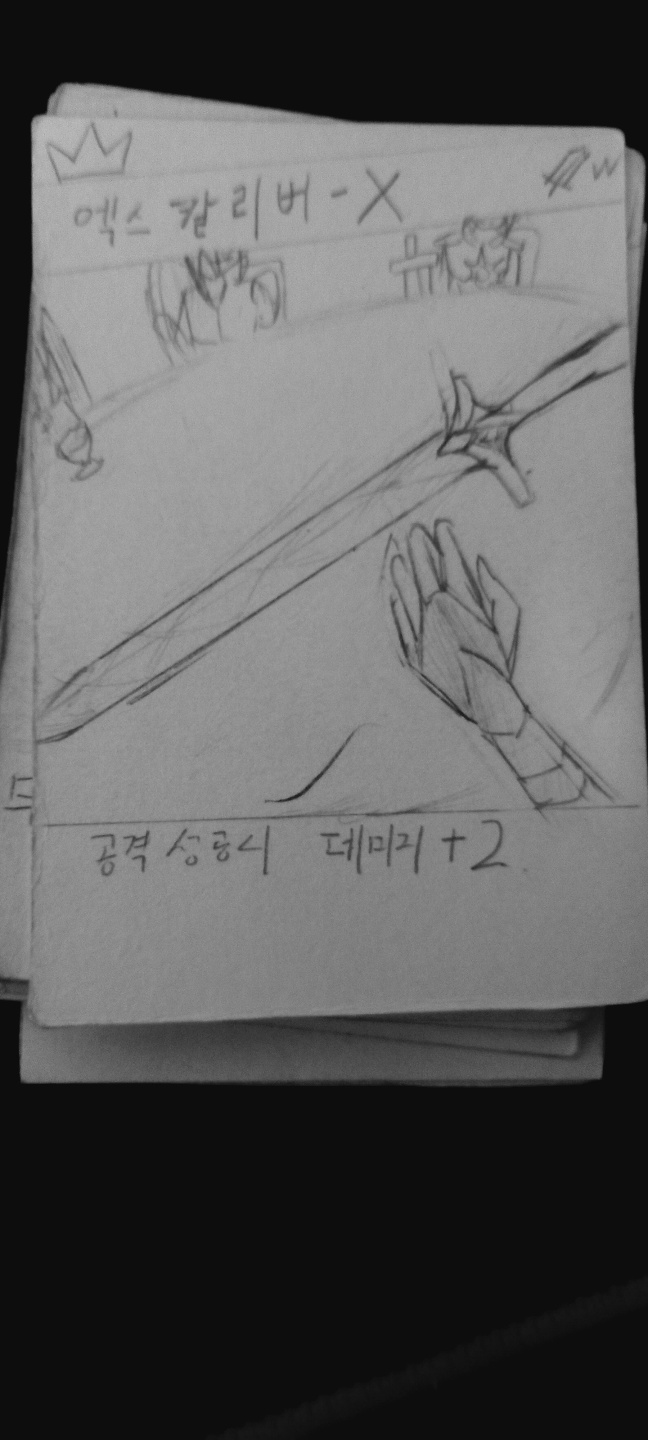 엑스칼리버-X
W
공격 성공시 데미지 +2